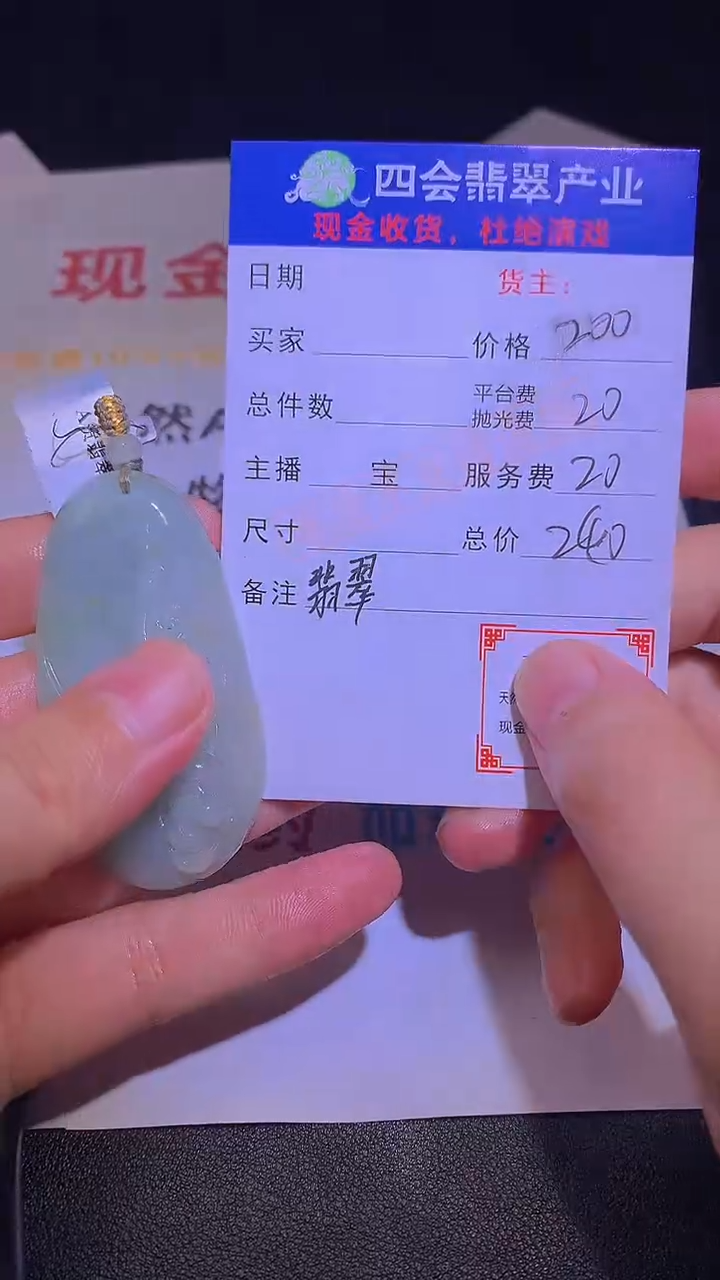 四会翡翠产业
现金收货，杜绝演戏
日期 货主：
买家 价格 200
总件数 平台费 抛光费 20
主播 宝 服务费 20
尺寸 总价 240
备注 翡翠
天然
现金
现金
然A